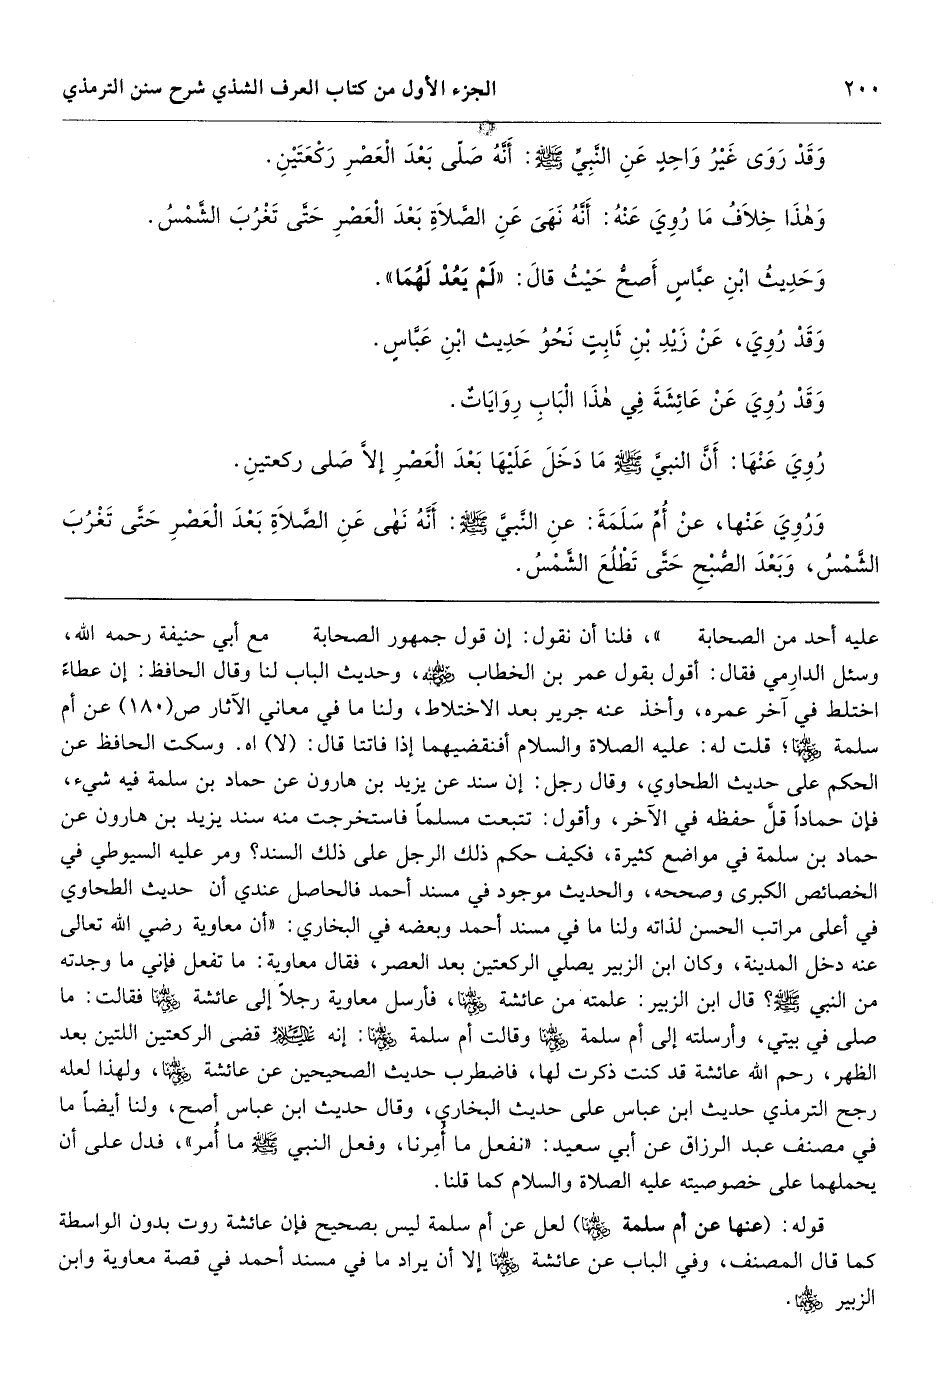 ٢٠٠ الجزء الأول من كتاب العرف الشذي شرح سنن الترمذي
وَقَدْ رَوَى غَيْرُ وَاحِدٍ عَنِ النَّبِيِّ ﷺ: أَنَّهُ صَلّى بَعْدَ الْعَصْرِ رَكْعَتَيْنِ.
وَهٰذَا خِلاَفُ مَا رُوِيَ عَنْهُ: أَنَّهُ نَهَى عَنِ الصَّلاَةِ بَعْدَ الْعَصْرِ حَتَّى تَغْرُبَ الشَّمْسُ.
وَحَدِيثُ ابْنِ عبَّاسٍ أَصحُّ حَيْثُ قالَ: «لَمْ يَعُدْ لَهُمَا».
وَقَدْ رُوِيَ، عَنْ زَيْدِ بْنِ ثَابِتٍ نَحْوُ حَدِيث ابْنِ عَبَّاسٍ.
وَقَدْ رُوِيَ عَنْ عَائِشَةَ فِي هٰذَا الْبَابِ رِوَايَاتٌ.
رُوِيَ عَنْهَا: أَنَّ النبيَّ ﷺ مَا دَخَلَ عَلَيْهَا بَعْدَ الْعَصْرِ إلاَّ صَلى ركعتينِ.
وَرُوِيَ عَنْها، عنْ أُمِّ سَلَمَةَ: عنِ النَّبيَّ ﷺ: أَنَّهُ نَهٰى عَنِ الصَّلاَةِ بَعْدَ الْعَصْرِ حَتَّى تَغْرُبَ
الشَّمْسُ، وَبَعْدَ الصُّبْحِ حَتَّى تَطْلُعَ الشَّمْسُ.
عليه أحد من الصحابة »، فلنا أن نقول: إن قول جمهور الصحابة مع أبي حنيفة رحمه الله،
وسئل الدارِمي فقال: أقول بقول عمر بن الخطاب رضي الله عنه، وحديث الباب لنا وقال الحافظ: إن عطاءً
اختلط في آخر عمره، وأخذ عنه جرير بعد الاختلاط، ولنا ما في معاني الآثار ص(١٨٠) عن أم
سلمة رضي الله عنها؛ قلت له: عليه الصلاة والسلام أفنقضيهما إذا فاتتا قال: (لا) اه. وسكت الحافظ عن
الحكم على حديث الطحاوي، وقال رجل: إن سند عن يزيد بن هارون عن حماد بن سلمة فيه شيء،
فإن حماداً قلَّ حفظه في الآخر، وأقول: تتبعت مسلماً فاستخرجت منه سند يزيد بن هارون عن
حماد بن سلمة في مواضع كثيرة، فكيف حكم ذلك الرجل على ذلك السند؟ ومر عليه السيوطي في
الخصائص الكبرى وصححه، والحديث موجود في مسند أحمد فالحاصل عندي أن حديث الطحاوي
في أعلى مراتب الحسن لذاته ولنا ما في مسند أحمد وبعضه في البخاري: «أن معاوية رضي الله تعالى
عنه دخل المدينة، وكان ابن الزبير يصلي الركعتين بعد العصر، فقال معاوية: ما تفعل فإني ما وجدته
من النبي ﷺ؟ قال ابن الزبير: علمته من عائشة رضي الله عنها، فأرسل معاوية رجلاً إلى عائشة رضي الله عنها فقالت: ما
صلى في بيتي، وأرسلته إلى أم سلمة رضي الله عنها وقالت أم سلمة رضي الله عنها: إنه عليه السلام قضى الركعتين اللتين بعد
الظهر، رحم الله عائشة قد كنت ذكرت لها، فاضطرب حديث الصحيحين عن عائشة رضي الله عنها، ولهذا لعله
رجح الترمذي حديث ابن عباس على حديث البخاري، وقال حديث ابن عباس أصح، ولنا أيضاً ما
في مصنف عبد الرزاق عن أبي سعيد: «نفعل ما أُمِرنا، وفعل النبي ﷺ ما أُمر»، فدل على أن
يحملهما على خصوصيته عليه الصلاة والسلام كما قلنا.
قوله: (عنها عن أم سلمة رضي الله عنها) لعل عن أم سلمة ليس بصحيح فإن عائشة روت بدون الواسطة
كما قال المصنف، وفي الباب عن عائشة رضي الله عنها إلا أن يراد ما في مسند أحمد في قصة معاوية وابن
الزبير رضي الله عنهما.